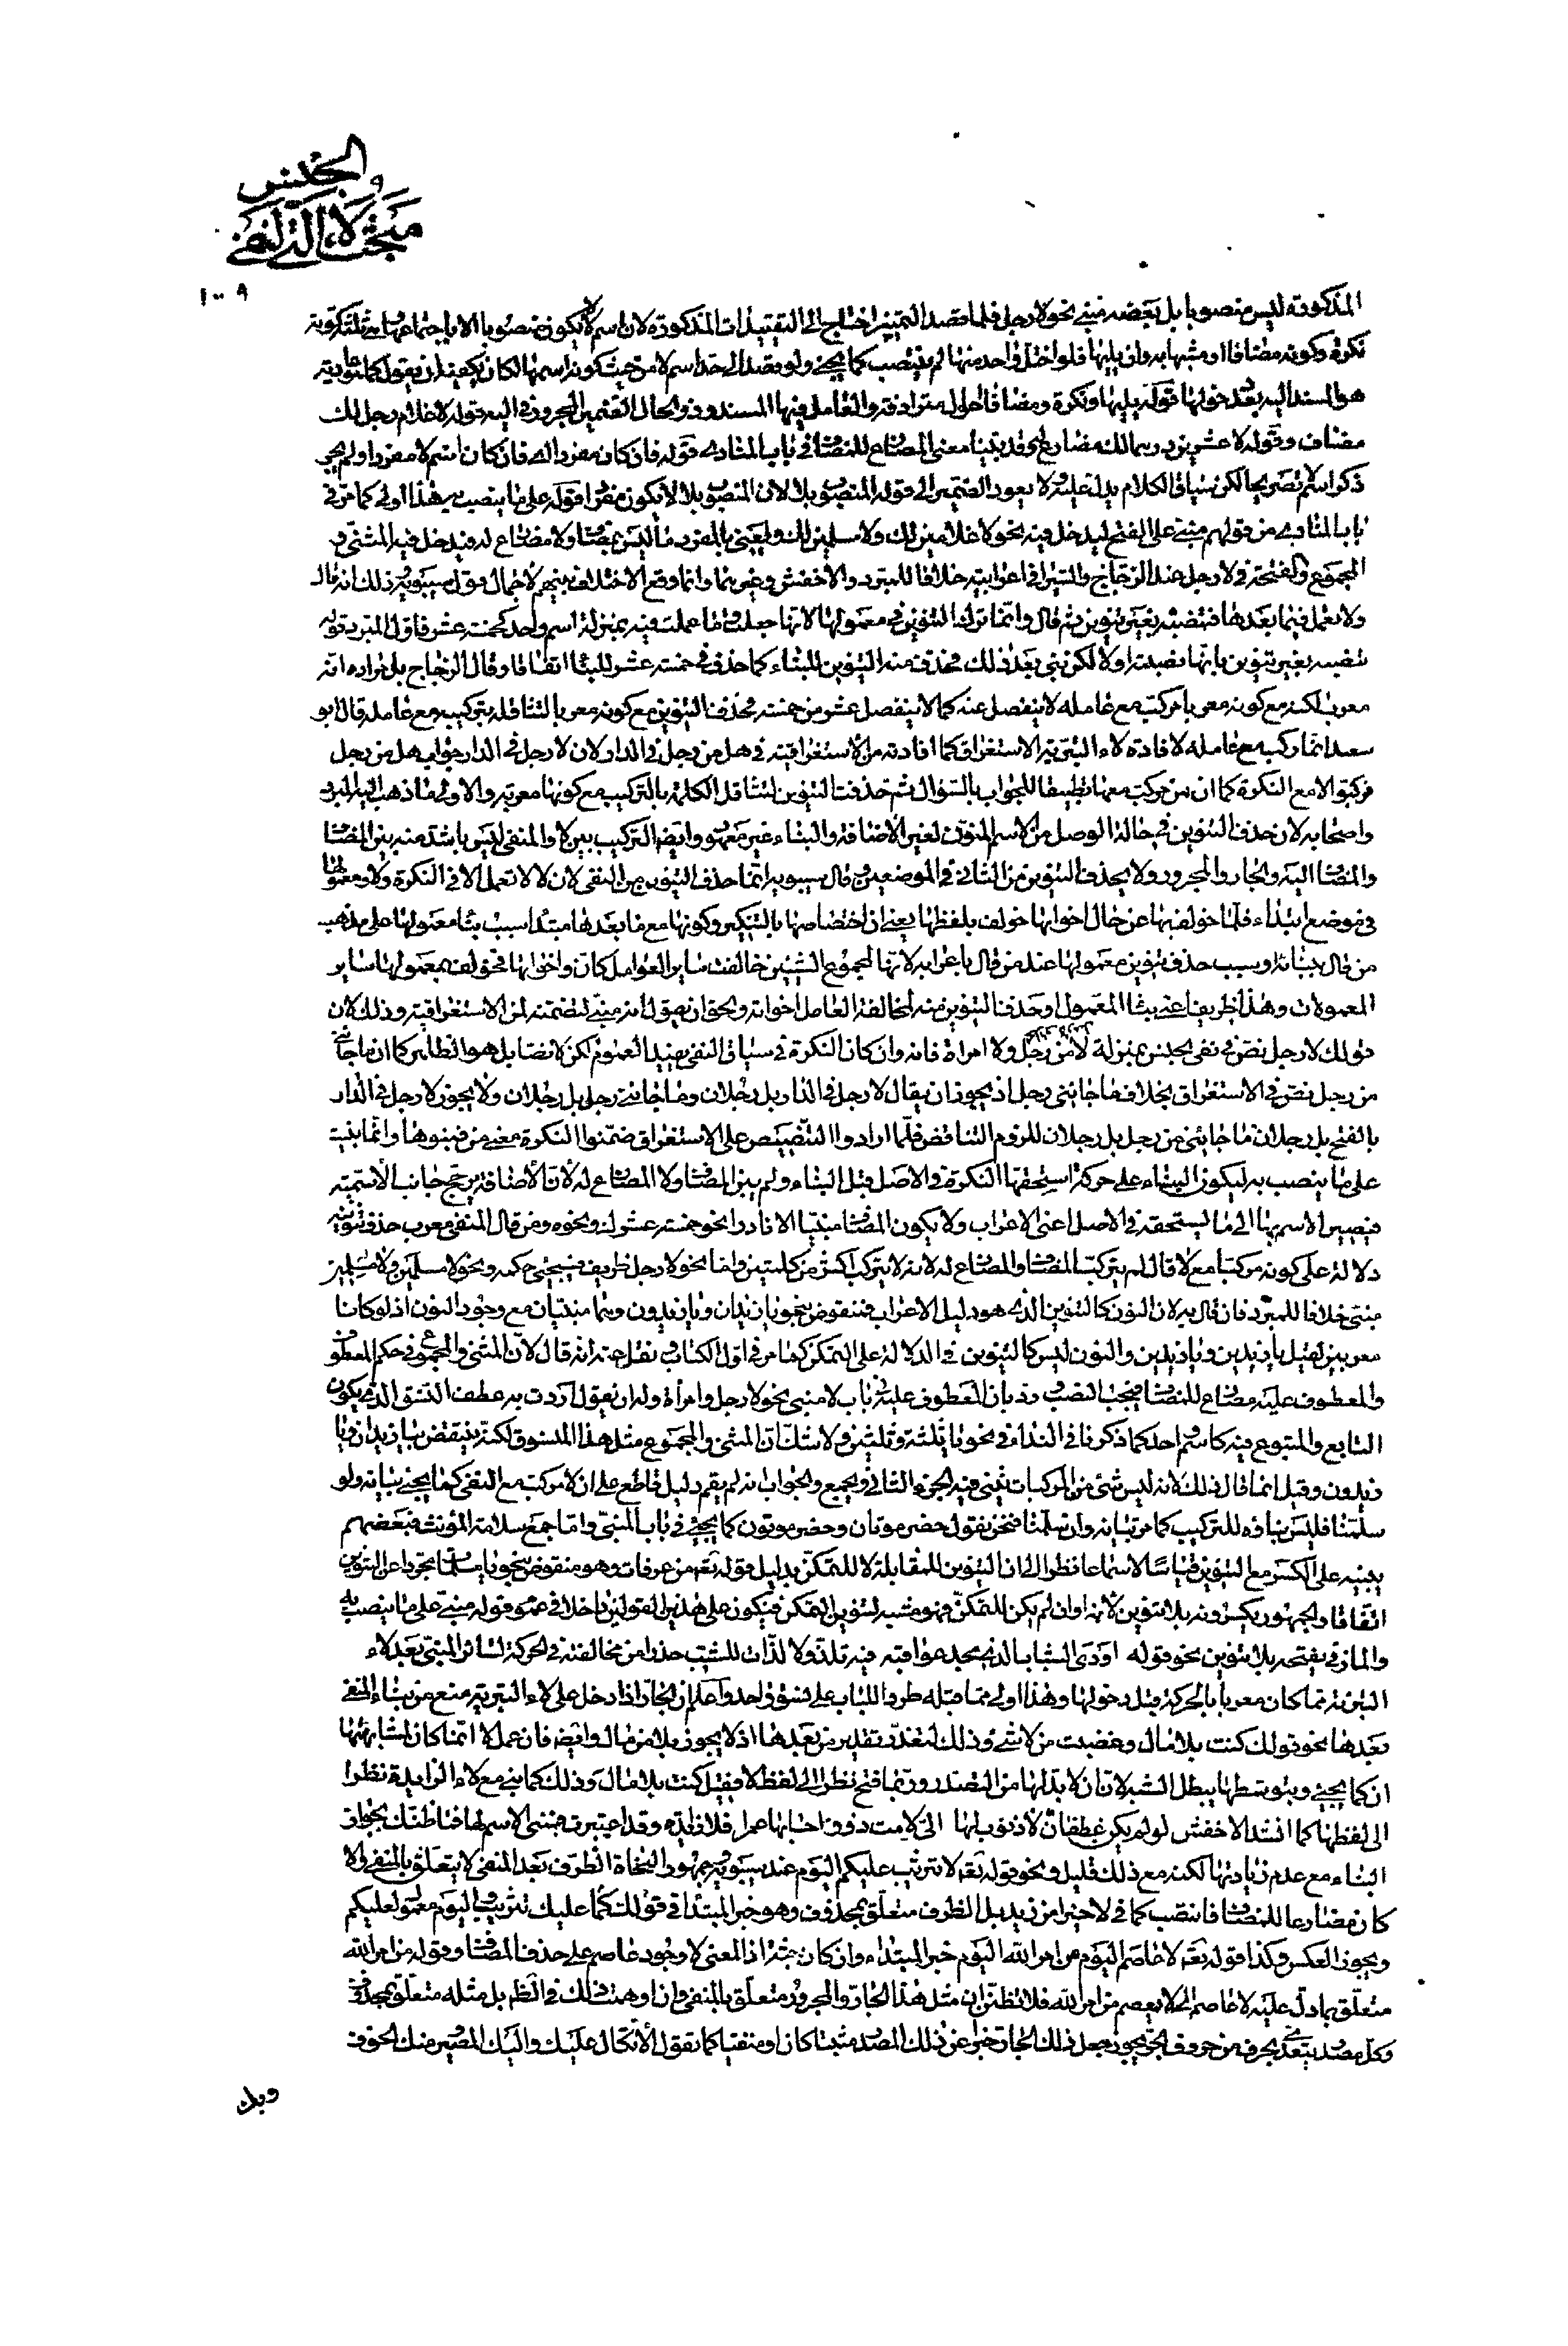 مبحث لاء التي لنفي
الجنس
١٠٩
المذكورة ليس منصوبا بل بعضه مبني نحو لا رجل فلما قصد التمييز احتاج الى التقييدات المذكورة لان اسم لا لا يكون منصوبا الا باجتماعها
نكرة وكونه مضافا او مشبها به وان يليها فلو اختل واحد منها لم ينتصب كما يجئ ولو قصد الى حد اسم لا من حيث كونه اسمها لكان يكفيه ان يقول كما
هو المسند اليه بعد دخولها قوله يليها ونكرة ومضافا احوال مترادفة والعامل فيها المسند وذو الحال الضمير المجرور في اليه قوله لا غلام رجل لك
مضاف وقوله لا عشرين درهما لك مضارع له وقد بينا معنى المضارع للمضاف في باب المنادى قوله فان كان مفردا اى فان كان اسم لا مفردا ولم يجر
ذكر اسم لا تصريحا لكن سياق الكلام يدل عليه ولا يعود الضمير الى قوله المنصوب بلا لان المنصوب بلا لا يكون مفردا قوله على ما ينصب به هذا اولى كما مر في
باب المنادى من قولهم مبني على الفتح ليدخل فيه نحو لا غلامين لك ولا مسلمين لك ويعني بالمفرد ما ليس بمضاف ولا مضارع له فيدخل فيه المثنى و
المجموع والفتحة في لا رجل عند الزجاج والسيرافي اعرابية خلافا للمبرد والاخفش وغيرهما وانما وقع الاختلاف بينهم لاجمال قول سيبويه وذلك انه قال
ولا تعمل فيما بعدها فتنصبه بغير تنوين ثم قال وانما ترك التنوين في معمولها لانها جعلت وما عملت فيه بمنزلة اسم واحد كخمسة عشر فاول المبرد قوله
تنصبه بغير تنوين بانها نصبته اولا لكن بني بعد ذلك فحذف منه التنوين للبناء كما حذف في خمسة عشر للبناء اتفاقا وقال الزجاج بل مراده انه
معرب لكنه مع كونه معربا مركب مع عامله لا ينفصل عنه كما لا ينفصل عشر من خمسة فحذف التنوين مع كونه معربا لتثاقله بتركيبه مع عامله قال ابو
سعيد انما ركب مع عامله لافادة لاء التبرئة الاستغراق كما افادته من الاستغراقية في هل من رجل في الدار لان لا رجل في الدار جواب هل من رجل
فركبوا لا مع النكرة كما ان من مركبة معها تطبيقا للجواب بالسؤال ثم حذفت التنوين لتثاقل الكلمة بالتركيب مع كونها معربة والاولى ما ذهب اليه المبرد
واصحابه لان حذف التنوين في حالة الوصل من الاسم المنون لغير الاضافة والبناء غير معهود وايضا التركيب بين لا والمنفى ليس باشد منه بين المضاف
والمضاف اليه والجار والمجرور ولا يحذف التنوين من الثاني في الموضعين وقال سيبويه انما حذف التنوين من المنفى لان لا لا تعمل الا في النكرة ولا ومعمولها
في موضع ابتداء فلما خولف بها عن حال اخواتها خولف بلفظها يعني ان اختصاصها بالتنكير وكونها مع ما بعدها مبتدأ سبب بناء معمولها على مذهب
من قال ببنائه او سبب حذف تنوين معمولها عند من قال باعرابه لانها لمجموع الشيئين خالفت ساير العوامل كان واخواتها فخولف بمعمولها ساير
المعمولات وهذا ظريف اعني بناء المعمول او حذف التنوين منه لمخالفة العامل اخواته والحق ان نقول انه مبني لتضمنه لمن الاستغراقية وذلك لان
قولك لا رجل نص في نفى الجنس بمنزلة لا من رجل ولا امراة فانه وان كان النكرة في سياق النفى يفيد العموم لكن لا نصا بل هو الظاهر كما ان ما جائني
من رجل نص في الاستغراق بخلاف ما جائني رجل اذ يجوز ان يقال لا رجل في الدار بل رجلان وما جائني رجل بل رجلان ولا يجوز لا رجل في الدار
بالفتح بل رجلان وما جائني من رجل بل رجلان للزوم التناقض فلما ارادوا التنصيص على الاستغراق ضمنوا النكرة معنى من فبنوها وانما بنيت
على ما ينصب به ليكون البناء على حركة استحقها النكرة في الاصل قبل البناء ولم يبن المضاف ولا المضارع له لان الاضافة ترجح جانب الاسمية
فيصير الاسم بها الى ما يستحقه في الاصل اعني الاعراب ولا يكون المضاف مبنيا الا نادرا نحو خمسة عشرك ونحوه ومن قال المنفى معرب حذف تنوينه
دلالة على كونه مركبا مع لا قال لم يتركب المضاف والمضارع له لانه لا يتركب اكثر من كلمتين واما نحو لا رجل ظريف فسيجئ حكمه ونحو لا مسلمين ولا مسلمين
مبني خلافا للمبرد فان قال به لان النون كالتنوين الذي هو دليل الاعراب فمنقوض بنحو يا زيدان ويا زيدون وهما مبنيان مع وجود النون اذ لو كانا
معربين لقيل يا زيدين ويا زيدين والنون ليس كالتنوين في الدلالة على التمكن كما مر في اول الكتاب ونقل عنه انه قال لان المثنى والمجموع في حكم المعطوف
والمعطوف عليه مضارع للمضاف فيجب النصب ورد بان المعطوف عليه في باب لا مبني نحو لا رجل وامرأة وله ان يقول اردت به عطف النسق الذي يكون
التابع والمتبوع فيه كاسم واحد كما ذكرنا في النداء في نحو يا ثلثة وثلثين ولا شك ان المثنى والمجموع مثل هذا المنسوق لكنه ينتقض بيا زيدان ويا
زيدون وقيل انما قال ذلك لانه ليس شئ من المركبات يثنى فيه الجزء الثاني ويجمع والجواب انه لم يقم دليل قاطع على ان لا مركب مع المنفى كما يجئ بيانه ولو
سلمنا فليس بناؤه للتركيب كما مر بيانه وان سلمنا فنحن نقول حضر موتان وحضر موتون كما يجئ في باب المبني واما جمع سلامة المؤنث فبعضهم
يبنيه على الكسر مع التنوين قياسا لا سماعا نظرا الى ان التنوين للمقابلة لا للتمكن بدليل قوله تعه من عرفات وهو منقوض بنحو يا مسلمات بحذف التنوين
اتفاقا والجمهور يكسرونه بلا تنوين لانه وان لم يكن للتمكن فهو مشبه لتنوين التمكن فيكون على هذين القولين داخلا في عموم قوله مبني على ما ينصب به
والمازني يفتحه بلا تنوين نحو قوله اودى الشباب الذي مجد عواقبه فيه نلذ ولا لذات للشيب حذرا من مخالفته في الحركة لسائر المبني بعد لاء
التبرئة مما كان معربا بالحركة قبل دخولها وهذا اولى مما قبله طردا للباب على نسق واحد واعلم ان الجار اذا دخل على لاء التبرية منع من بناء المنفى
بعدها نحو قولك كنت بلا مال وغضبت من لا شئ وذلك لتعذر تقدير من بعدها اذ لا يجوز بلا من مال وايضا فان عمل لا انما كان لمشابهتها
ان كما يجئ وبتوسطها يبطل الشبه لان ان لا بد لها من التصدر وربما فتح نظرا الى لفظ لا فقيل كنت بلا مال وذلك كما بني مع لاء الزايدة نظرا
الى لفظها كما انشد الاخفش لو لم يكن غطفان لا ذنوب لها الى لامت ذوو احسابها عمرا فلا زايدة وقد اعتبرت فبني الاسم لها فما ظنك بجواز
البناء مع عدم زيادتها لكنه مع ذلك قليل ونحو قوله تعه لا تثريب عليكم اليوم عند سيبويه وجمهور النحاة الظرف بعد المنفى لا يتعلق بالمنفى والا
كان مضارعا للمضاف فانتصب كما في لا خيرا من زيد بل الظرف متعلق بمحذوف وهو خبر المبتدأ في قولك كما عليك تثريب واليوم معمول عليكم
ويجوز العكس وكذا قوله تعه لا عاصم اليوم من امر الله اليوم خبر المبتداء وان كان جثة اذ المعنى لا وجود عاصم على حذف المضاف وقوله من امر الله
متعلق بما دل عليه لا عاصم اى لا يعصم من امر الله فلا تظنن ان مثل هذا الجار والمجرور متعلق بالمنفى وان اوهمت ذلك في الظاهر بل مثله متعلق بمحذوف
وكل مصدر يتعدى بحرف من حروف الجر يجوز جعل ذلك الجار خبرا عن ذلك المصدر مثبتا كان او منفيا كما تقول الاتكال عليك واليك المصير ومنك الخوف
وبك